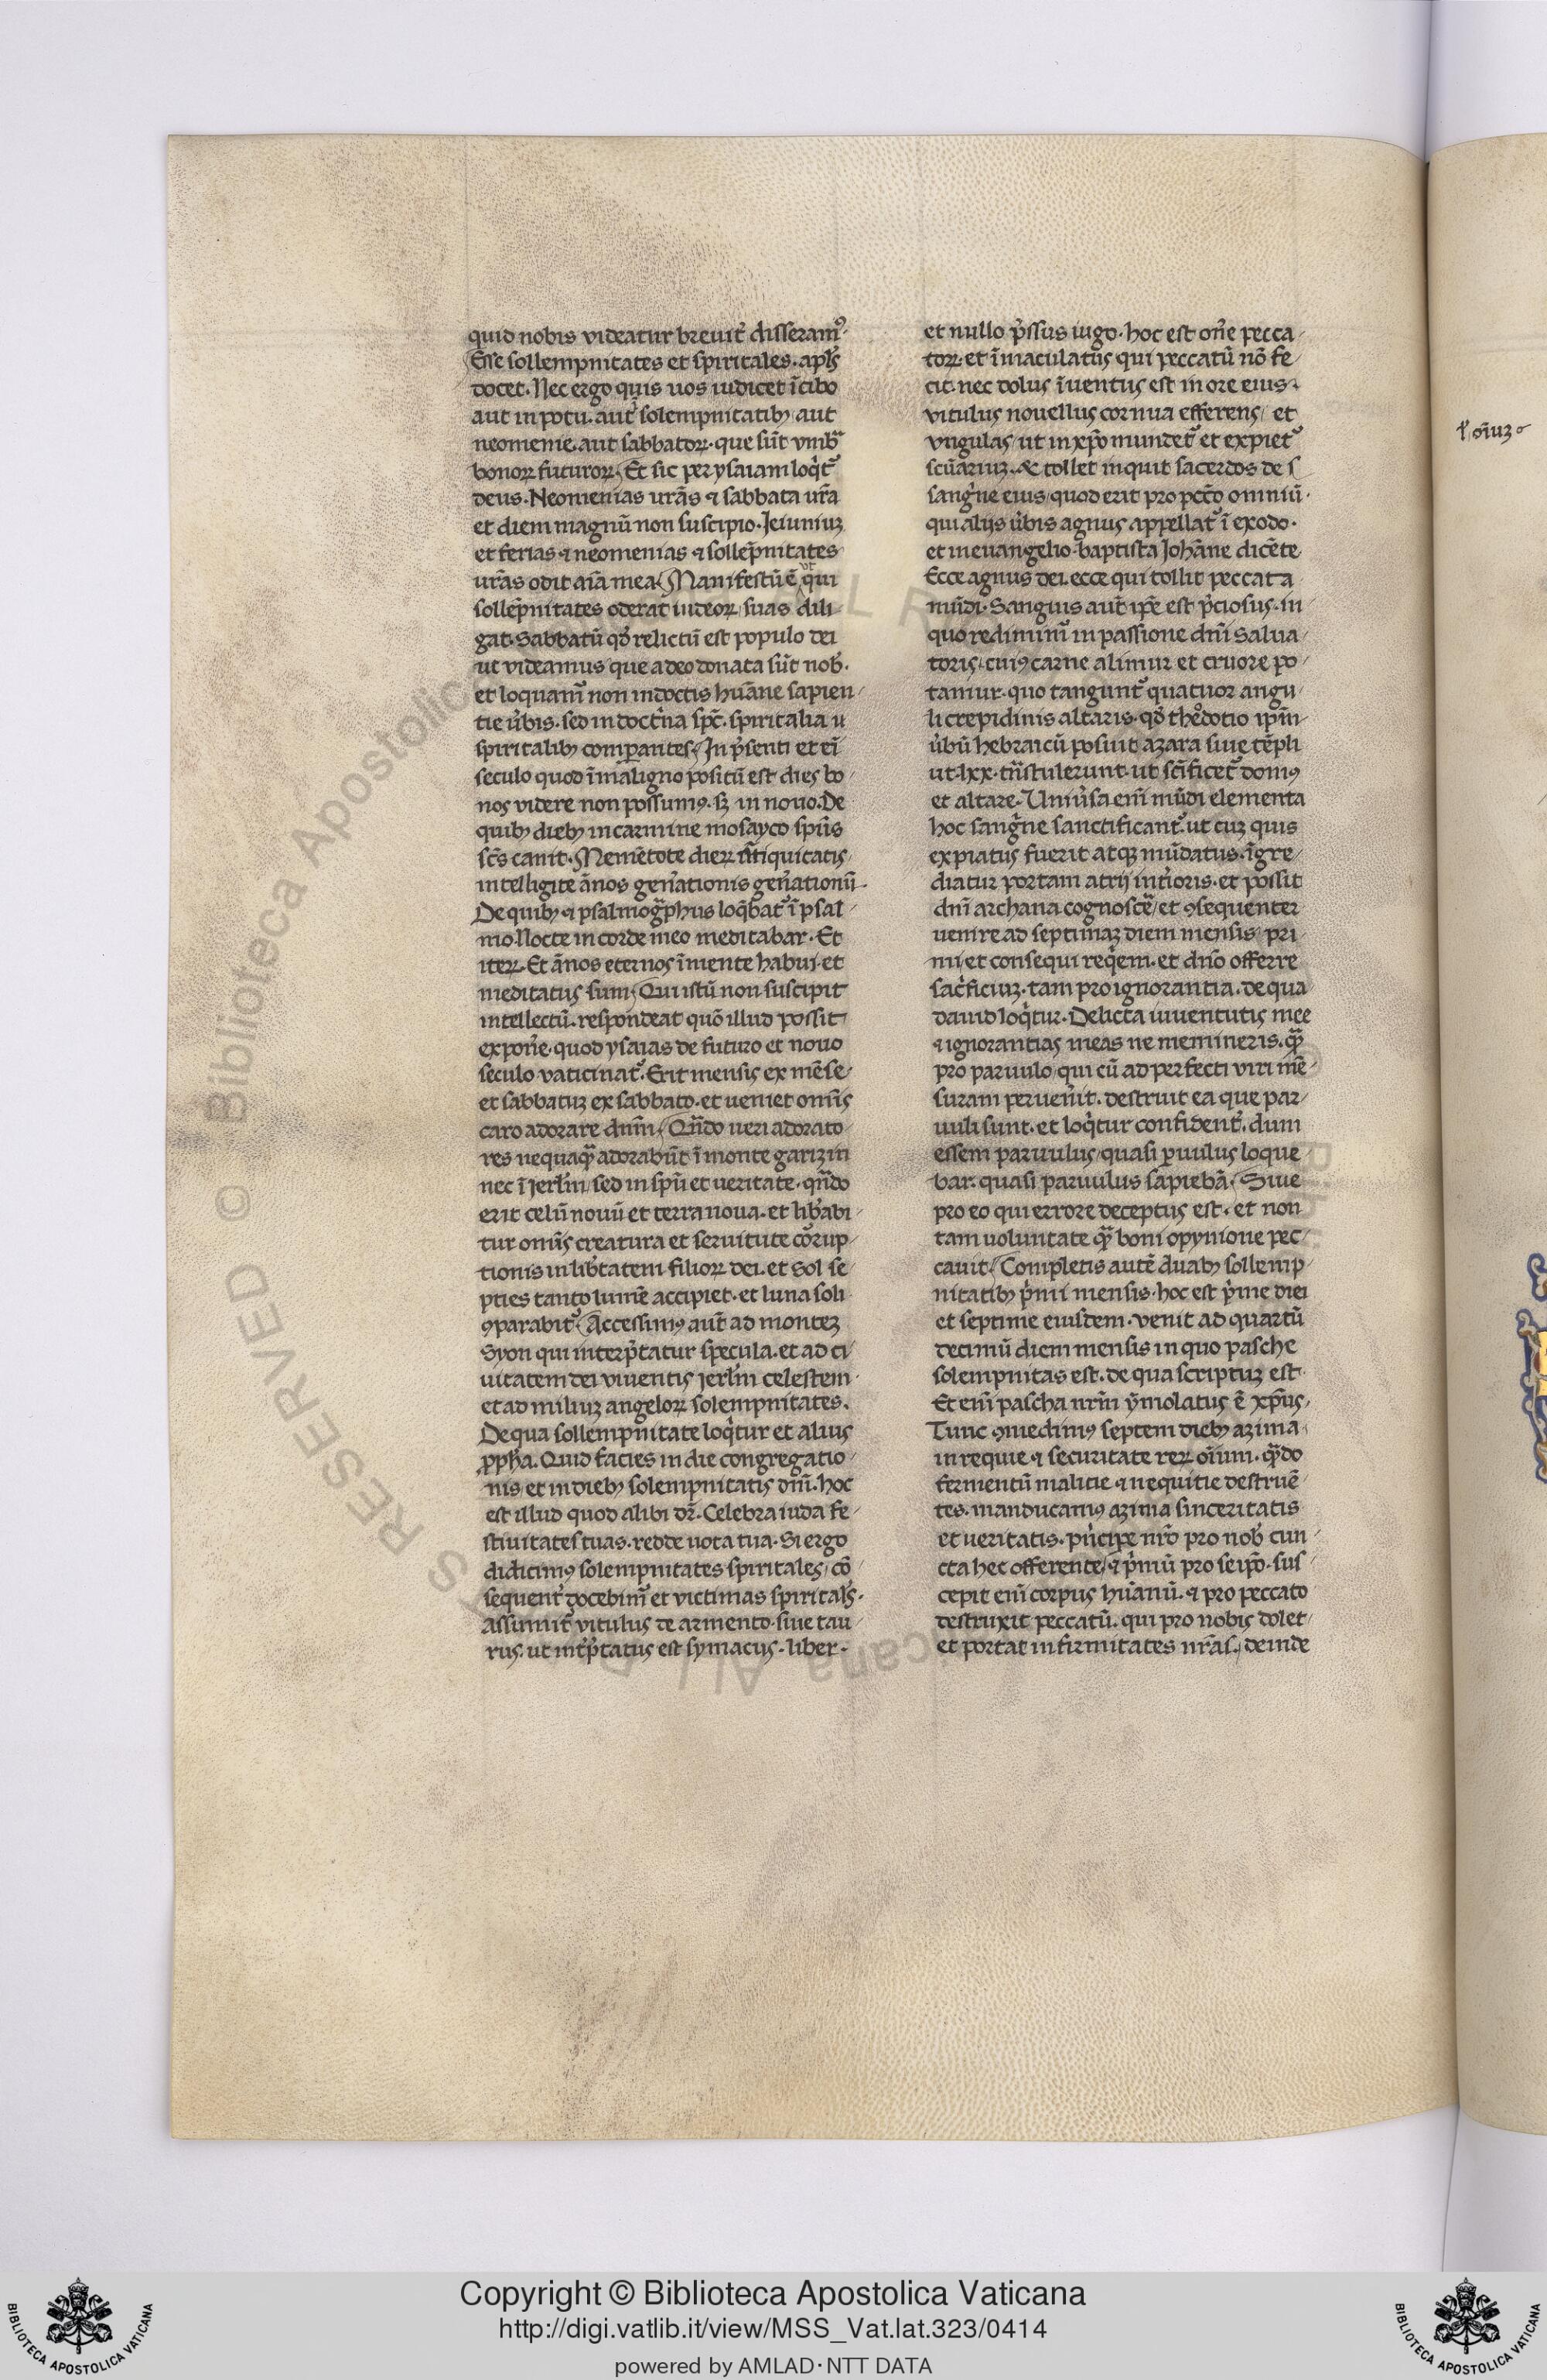 quid nobis videatur breuit̉ disseramꝰ·
Esse sollempnitates et spiritales. apl̓s
docet. Nec ergo quis uos iudicet ĩ cibo
aut in potu. aut̉ solempnitatibꝫ aut
neomenie. aut sabbatoꝝ. que sũt vmbᵃ
bonoꝝ futuroꝝ. Et sic per ysaiam loqͥtᷣ
deus. Neomenias ur̃as ⁊ sabbata ur̃a
et diem magnũ non suscipio. Ieiuniuꝫ
et ferias ⁊ neomenias ⁊ sollep̃nitates
ur̃as odit aĩa mea. Manifestũ ẽ ut qui
sollep̃nitates oderat iudeoꝝ suas dili
gat. Sabbatũ qđ relictũ est populo dei
ut videamus que a deo donata sũt nob̉.
et loquamᷣ non in doctis hũane sapien
tie ũbis. sed in doctͥna sp̃c. spiritalia u
spiritalibꝫ comꝑantes. In p̃senti et eĩ
seculo quod ĩ maligno positũ est dies bo
nos videre non possumꝰ. sꝫ in nouo. De
quibꝫ diebꝫ in carmine mosayco spũs
sc̃s canit. Memẽtote dieꝝ ãtiquitatis.
intelligite ãnos gen̉ationis gen̉ationũ.
De quibꝫ ⁊ psalmogᵃphus loqͣbatᷣ ĩ psal
mo. Nocte in corde meo meditabar. Et
iteꝝ. Et ãnos eternos ĩ mente habui. et
meditatus sum. Qui istũ non suscipit
intellectũ. respondeat quõ illud possit
expon̉e. quod ysaias de futuro et nouo
seculo vaticinatᷣ. Erit mensis ex mẽse
et sabbatuꝫ ex sabbato. et ueniet om̃is
caro adorare dnm̃. Qñdo ueri adorato
res nequaqᵃ̃ adorabũt ĩ monte garizin
nec ĩ Ierlm̃ sed in spũ et ueritate. qñdo
erit celũ nouũ et terra noua. et lib̉abi
tur om̃is creatura et seruitute cõrup
tionis in lib̉tatem filioꝝ dei. et sol se
pties tanto lumẽ accipiet. et luna soli
ꝯparabitᷣ. Accessimꝰ aut̃ ad monteꝫ
Syon qui interp̃tatur specula. et ad ci
uitatem dei viuentis ierlm̃ celestem
et ad miliuꝫ angeloꝝ solempnitates.
De qua sollempnitate loqͥtur et alius
ꝓph̃a. Quid facies in die congregatio
nis et in diebꝫ solempnitatis dñi. hoc
est illud quod alibi dr̃. Celebra iuda fe
stiuitates tuas. redde uota tua. Si ergo
didicimꝰ solempnitates spiritales, cõ
sequent̉ docebimᷣ et victimas spiritaľs.
Assumitᷣ vitulus de armento. siue tau
rus. ut int̉p̃tatus est symacus. liber.
et nullo p̃ssus iugo. hoc est on̉e pecca
toꝝ. et ĩmaculatus qui peccatũ nõ fe
cit. nec dolus ĩuentus est in ore eius.
vitulus nouellus cornua efferens et
vngulas ut in xp̃o mundetᷣ et expietᷣ
scũariuꝫ. & tollet inquit sacerdos de s
sangͥne eius quod erit pro pcc̃o omniũ.
qui alijs ũbis agnus appellatᷣ ĩ exodo.
et in euangelio baptista Iohãne dicẽte
Ecce agnus dei. ecce qui tollit peccata
mũdi. Sanguis aut̃ ip̃e est p̃ciosus. in
quo redimimᷣ in passione dñi salua
toris. cuiꝰ carne alimur et cruore po
tamur. quo tanguntᷣ quatuor angu
li crepidinis altaris. qđ theͦdotio ip̃m
ũbũ hebraicũ posuit azara siue tẽpli
ut. lxx. trãstulerunt. ut sc̃ificetᷣ domꝰ
et altare. Uniũsa eñi mũdi elementa
hoc sangͥne sanctificantᷣ. ut cuꝫ quis
expiatus fuerit atqꝫ mũdatus. ĩgre
diatur portam atrij int̉ioris. et possit
dñi archana cognosc̉e et ꝯsequenter
uenire ad septimaꝫ diem mensis pri
mi et consequi reqͥem. et dño offerre
sacͥficiuꝫ. tam pro ignorantia. de qua
dauid loqͥtur. Delicta iuuentutis mee
⁊ ignorantias meas ne memineris. qᵃ̃
pro paruulo qui cũ ad perfecti viri mẽ
suram peruen̉it. destruit ea que par
uuli sunt. et loqͥtur confident̉. dum
essem paruulus quasi ꝑuulus loque
bar. quasi paruulus sapiebã. Siue
pro eo qui errore deceptus est. et non
tam uoluntate qᵃ̃ boni opynione pec
cauit. Completis autẽ duabꝫ sollemp
nitatibꝫ pͥmi mensis. hoc est pͥme diei
et septime eiusdem. venit ad quartũ
decimũ diem mensis in quo pasche
solempnitas est. de qua scriptuꝫ est.
Et eñi pascha nrm̃ ỹmolatus ẽ xp̃us.
Tunc ꝯmedimꝰ septem diebꝫ azima
in requie ⁊ securitate reꝝ oĩum. qᵃ̃do
fermentũ malitie ⁊ nequitie destruẽ
tes. manducamꝰ azima sinceritatis
et ueritatis. pͥncipe nr̃o pro nob̉ cun
cta hec offerente. ⁊ pͥmũ pro seip̃o. sus
cepit eñi corpus hũanũ. ⁊ pro peccato
destruxit peccatũ. qui pro nobis dolet
et portat infirmitates nr̃as. deinde
© Biblioteca Apostolica Vaticana ALL RIGHTS RESERVED
Copyright © Biblioteca Apostolica Vaticana
http://digi.vatlib.it/view/MSS_Vat.lat.323/0414
powered by AMLAD·NTT DATA
BIBLIOTECA APOSTOLICA VATICANA
BIBLIOTECA APOSTOLICA VATICANA